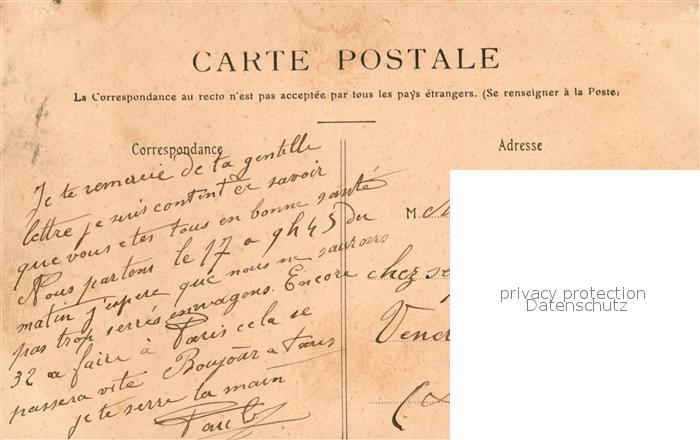 CARTE POSTALE
La Correspondance au recto n'est pas acceptée par tous les pays étrangers. (Se renseigner à la Poste)
Correspondance
Je te remercie de ta gentille
lettre je suis content de savoir
que vous etes tous en bonne santé
Nous partons le 17 a 9h45 du
matin j'espere que nous ne saurons
pas trop serrés en wagons. Encore
32 a faire à Paris cela se
passera vite Boujour a tous
je te serre la main
Adresse
M
chez
privacy protection
Datenschutz